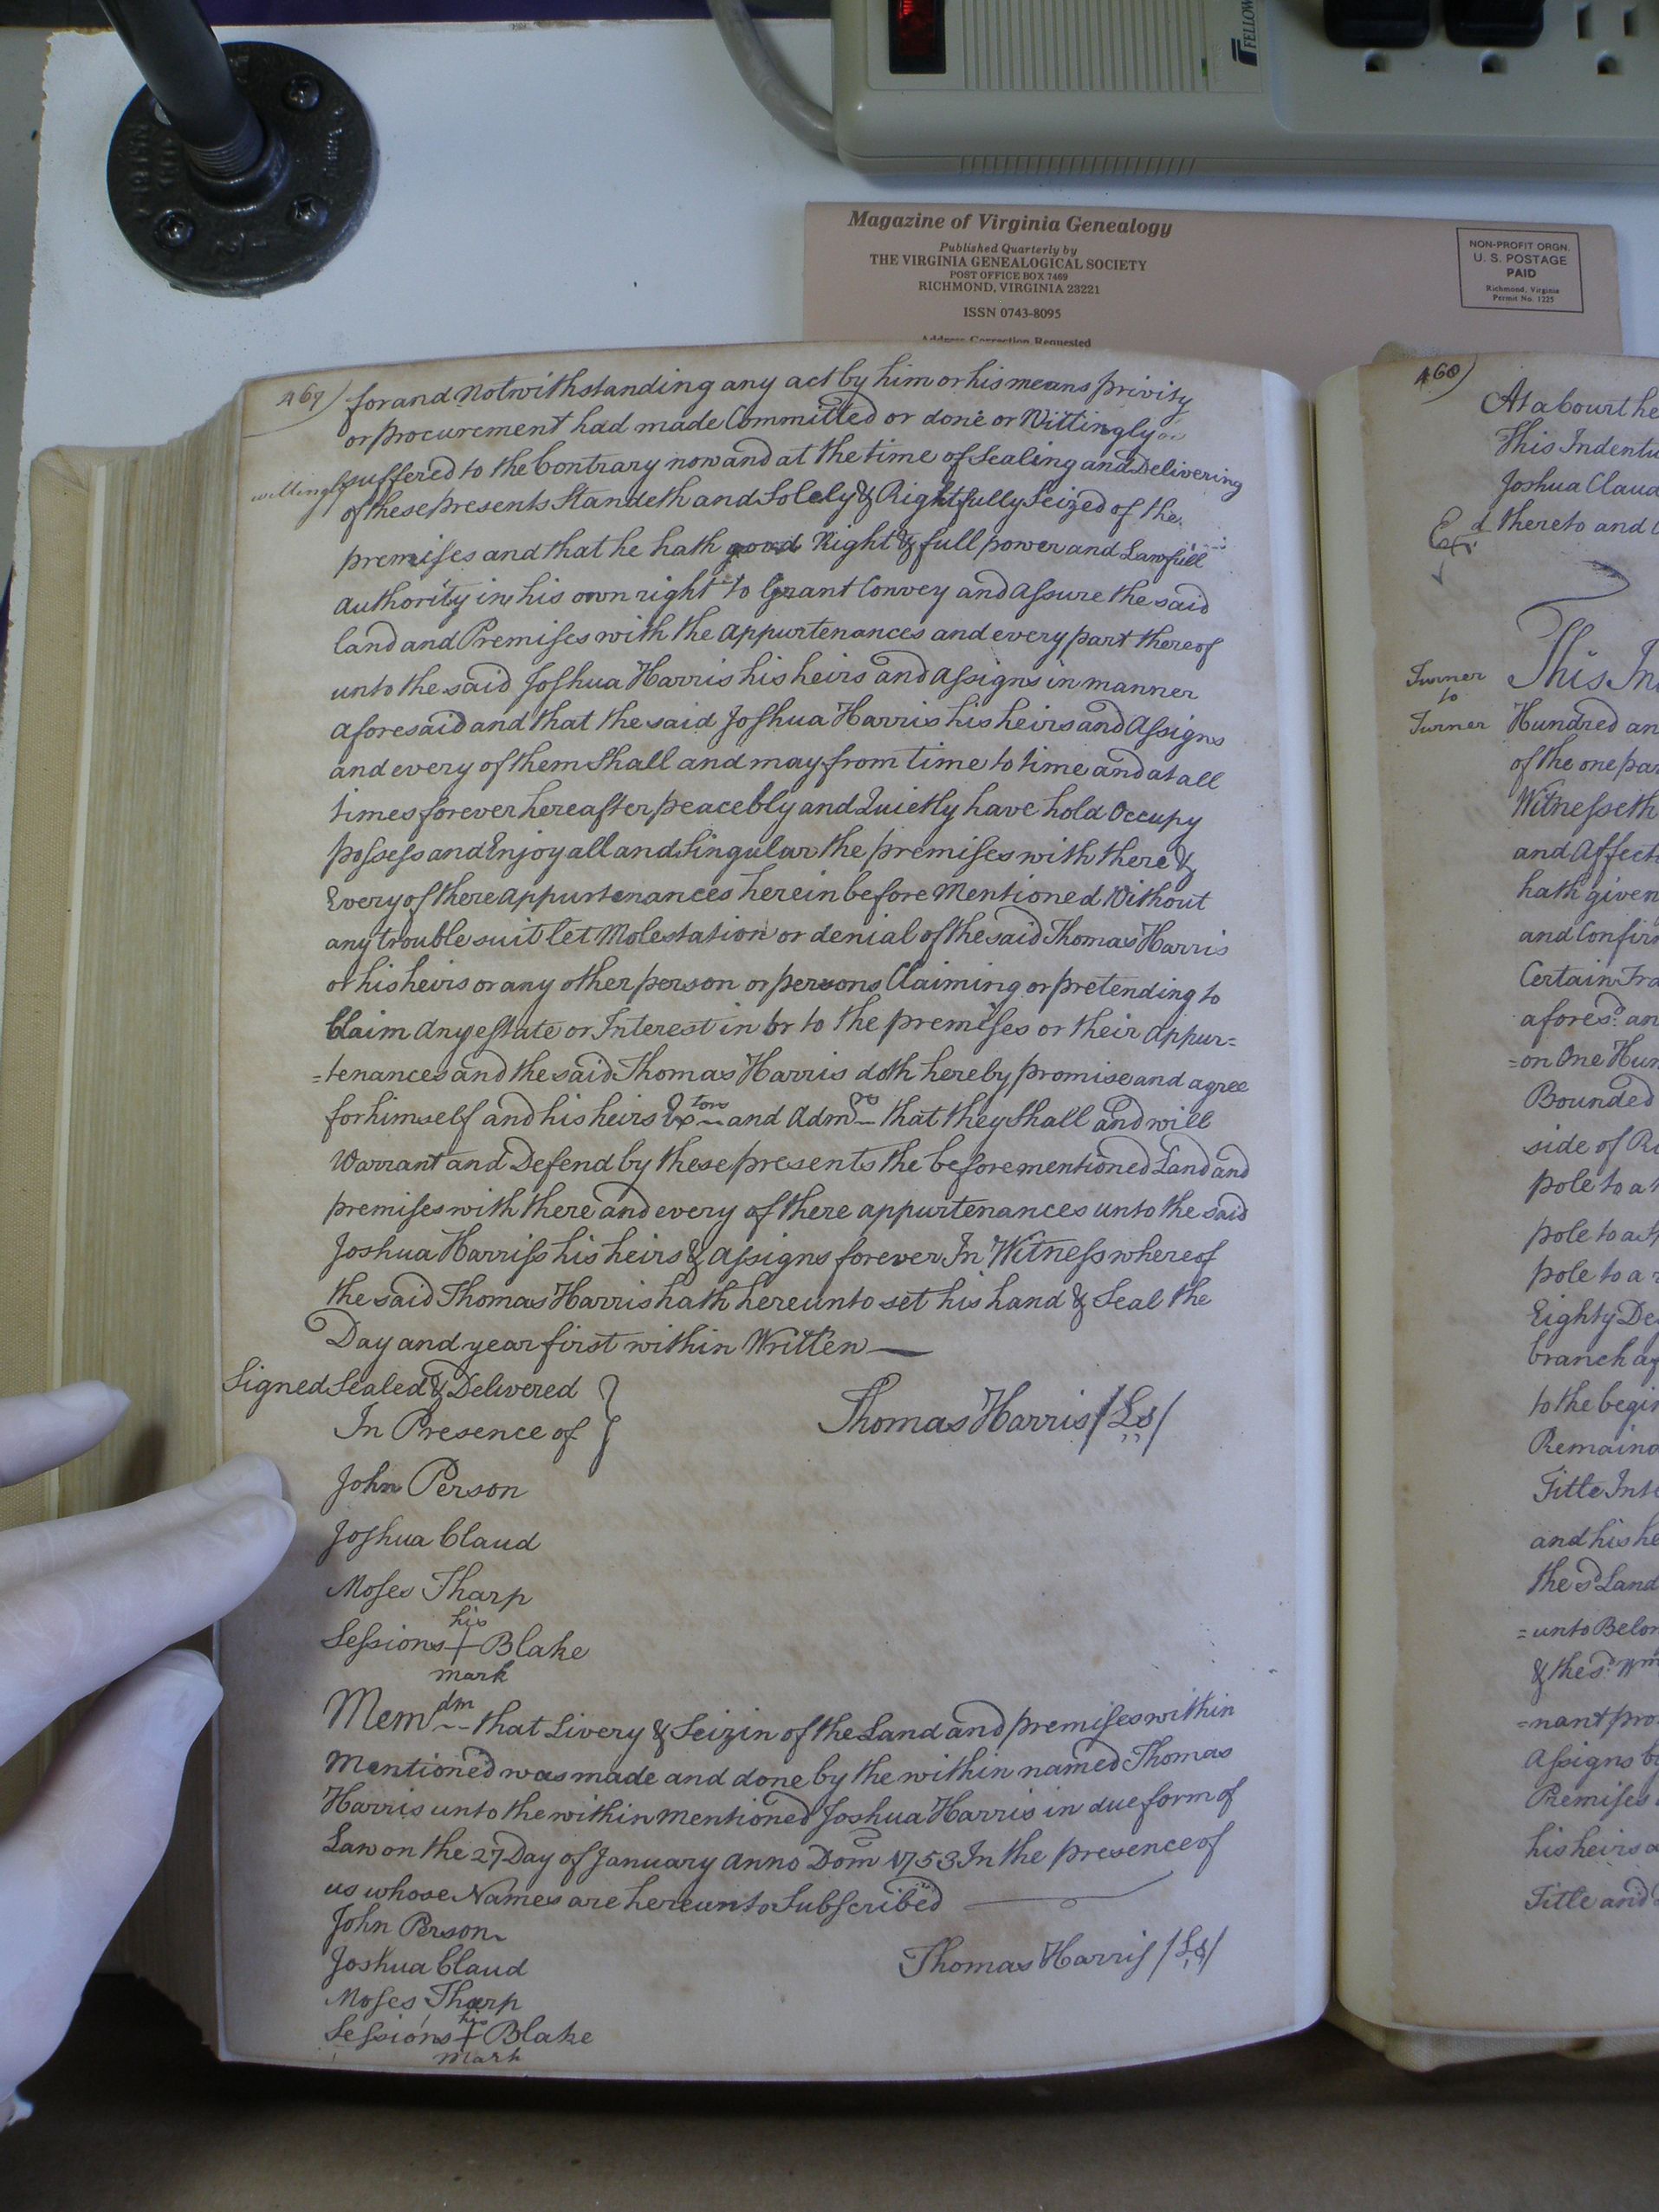 FELLOW
Magazine of Virginia Genealogy
Published Quarterly by
THE VIRGINIA GENEALOGICAL SOCIETY
POST OFFICE BOX 7469
RICHMOND, VIRGINIA 23221
ISSN 0743-8095
Address Correction Requested
NON-PROFIT ORGN.
U. S. POSTAGE
PAID
Richmond, Virginia
Permit No. 1225
469)
for and Notwithstanding any act by him or his means privity
or procurement had made Committed or done or Wittingly or
willingly suffered to the Contrary now and at the time of Sealing and Delivering
of these presents Standeth and Solely & Rightfully Seized of the
premises and that he hath good Right & full power and Lawfull
authority in his own right to Grant Convey and assure the said
land and Premises with the appurtenances and every part thereof
unto the said Joshua Harris his heirs and assigns in manner
aforesaid and that the said Joshua Harris his heirs and Assigns
and every of them Shall and may from time to time and at all
times forever hereafter peacebly and Quietly have hold Occupy
possess and Enjoy all and Singular the premises with there &
Every of there appurtenances herein before Mentioned Without
any trouble suit let Molestation or denial of the said Thomas Harris
or his heirs or any other person or persons Claiming or pretending to
Claim any estate or Interest in or to the premises or their appur=
=tenances and the said Thomas Harris doth hereby promise and agree
for himself and his heirs Extors and Admrs that they Shall and will
Warrant and Defend by these presents the before mentioned Land and
premises with there and every of there appurtenances unto the said
Joshua Harriss his heirs & assigns forever In Witness whereof
the said Thomas Harris hath hereunto set his hand & Seal the
Day and year first within Written
Signed Sealed & Delivered
In Presence of
Thomas Harris /Ls/
John Person
Joshua Claud
Moses Tharp
his
Sessions + Blake
mark
Memdm that Livery & Seizin of the Land and premises within
Mentioned was made and done by the within named Thomas
Harris unto the within mentioned Joshua Harris in due form of
Law on the 27 Day of January Anno Dom 1753 In the presence of
us whose Names are hereunto Subscribed
John Person
Joshua Claud
Thomas Harris /Ls/
Moses Tharp
his
Sessions + Blake
mark
460)
At a Court he
This Indentu
Joshua Claud
Exd thereto and
Turner
to
Turner
This In
Hundred an
of the one par
Witnesseth
and Affect
hath given
and Confir
Certain Tra
afores.d an
=on One Hun
Bounded
side of
pole to a
pole to a
pole to a
Eighty De
branch
to the begin
Remaind
Title Inte
and his he
the sd Land
=unto Belon
& the sd. Wm
=nant pro
Assigns
Premises
his heirs a
Title and